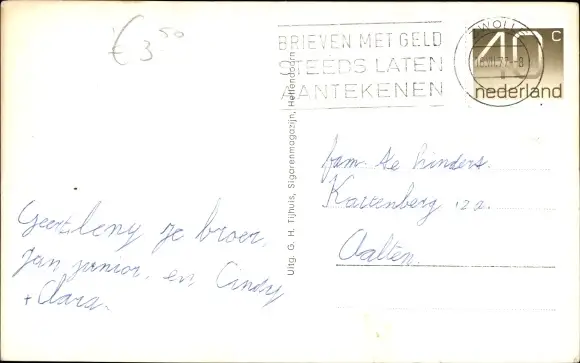 € 3.50
BRIEVEN MET GELD
STEEDS LATEN
AANTEKENEN
ZWOLLE
40 c
nederland
Uitg. G. H. Tijhuis, Sigarenmagazijn, Hellendoorn
fam. te Hinders.
12a.
Aalten.
Geert. Leny je broer,
Jan junior, en Cindy
+ Clara.